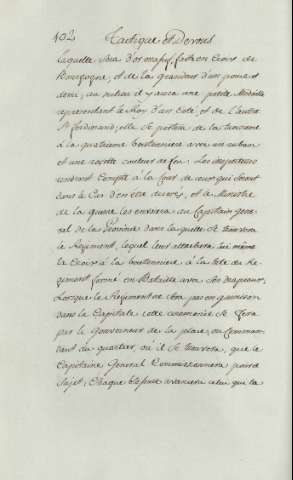 102 Tactique et Devoirs
laquelle sera d'or massif, faite en Croix de
Bourgogne, et de la grandeur d'un pouce et
demi, au milieu il y aura une petite Médaille
representant le Roy d'un coté, et de L'autre
St ferdinand; elle se portera de la troisieme
à la quatrieme boutonniere avec un ruban
et une rosette couleur de feu. Les Inspecteurs
rendront Compte à la Cour de ceux qui seront
dans le Cas d'en être decorés, et le Ministre
de la guerre les enverra au Capitaine gene-
ral de la Province dans laquelle se trouvera
le Regiment, lequel leur attachera lui même
la Croix à la boutonniere à la tête du Re-
giment formé en Bataille avec ses drapeaux.
Lorsque le Regiment ne sera pas en garnison
dans la Capitale cette ceremonie se fera
par le Gouverneur de la place, ou Comman-
dant du quartier, ou il se trouvera, que le
Capitaine General Commissionnera pour ce
Sujet; Chaque